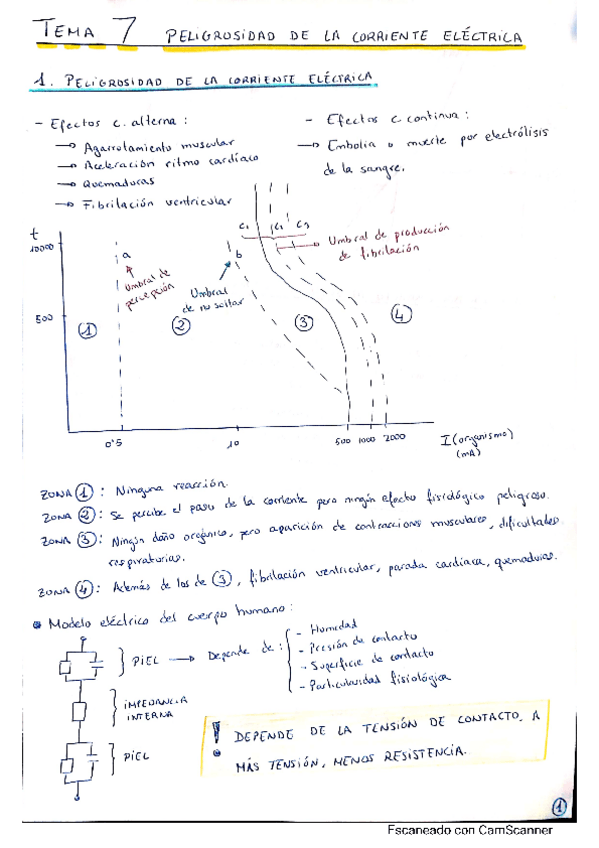 TEMA 7 PELIGROSIDAD DE LA CORRIENTE ELÉCTRICA
1. PELIGROSIDAD DE LA CORRIENTE ELÉCTRICA
- Efectos c. alterna:
→ Agarrotamiento muscular
→ Aceleración ritmo cardíaco
→ Quemaduras
→ Fibrilación ventricular
- Efectos c. continua:
→ Embolia o muerte por electrólisis
de la sangre.
t
10000
500
a
Umbral de
percepción
b
Umbral
de no soltar
C1 C2 C3
Umbral de producción
de fibrilación
1 2 3 4
0'5 10 500 1000 2000
I (organismo)
(mA)
ZONA 1: Ninguna reacción.
ZONA 2: Se percibe el paso de la corriente pero ningún efecto fisiológico peligroso.
ZONA 3: Ningún daño orgánico, pero aparición de contracciones musculares, dificultades
respiratorias.
ZONA 4: Además de los de 3, fibrilación ventricular, parada cardíaca, quemaduras.
Modelo eléctrico del cuerpo humano:
PIEL → Depende de:
- Humedad
- Presión de contacto
- Superficie de contacto
- Particularidad fisiológica
IMPEDANCIA
INTERNA
PIEL
! DEPENDE DE LA TENSIÓN DE CONTACTO. A
MÁS TENSIÓN, MENOS RESISTENCIA.
1
Escaneado con CamScanner